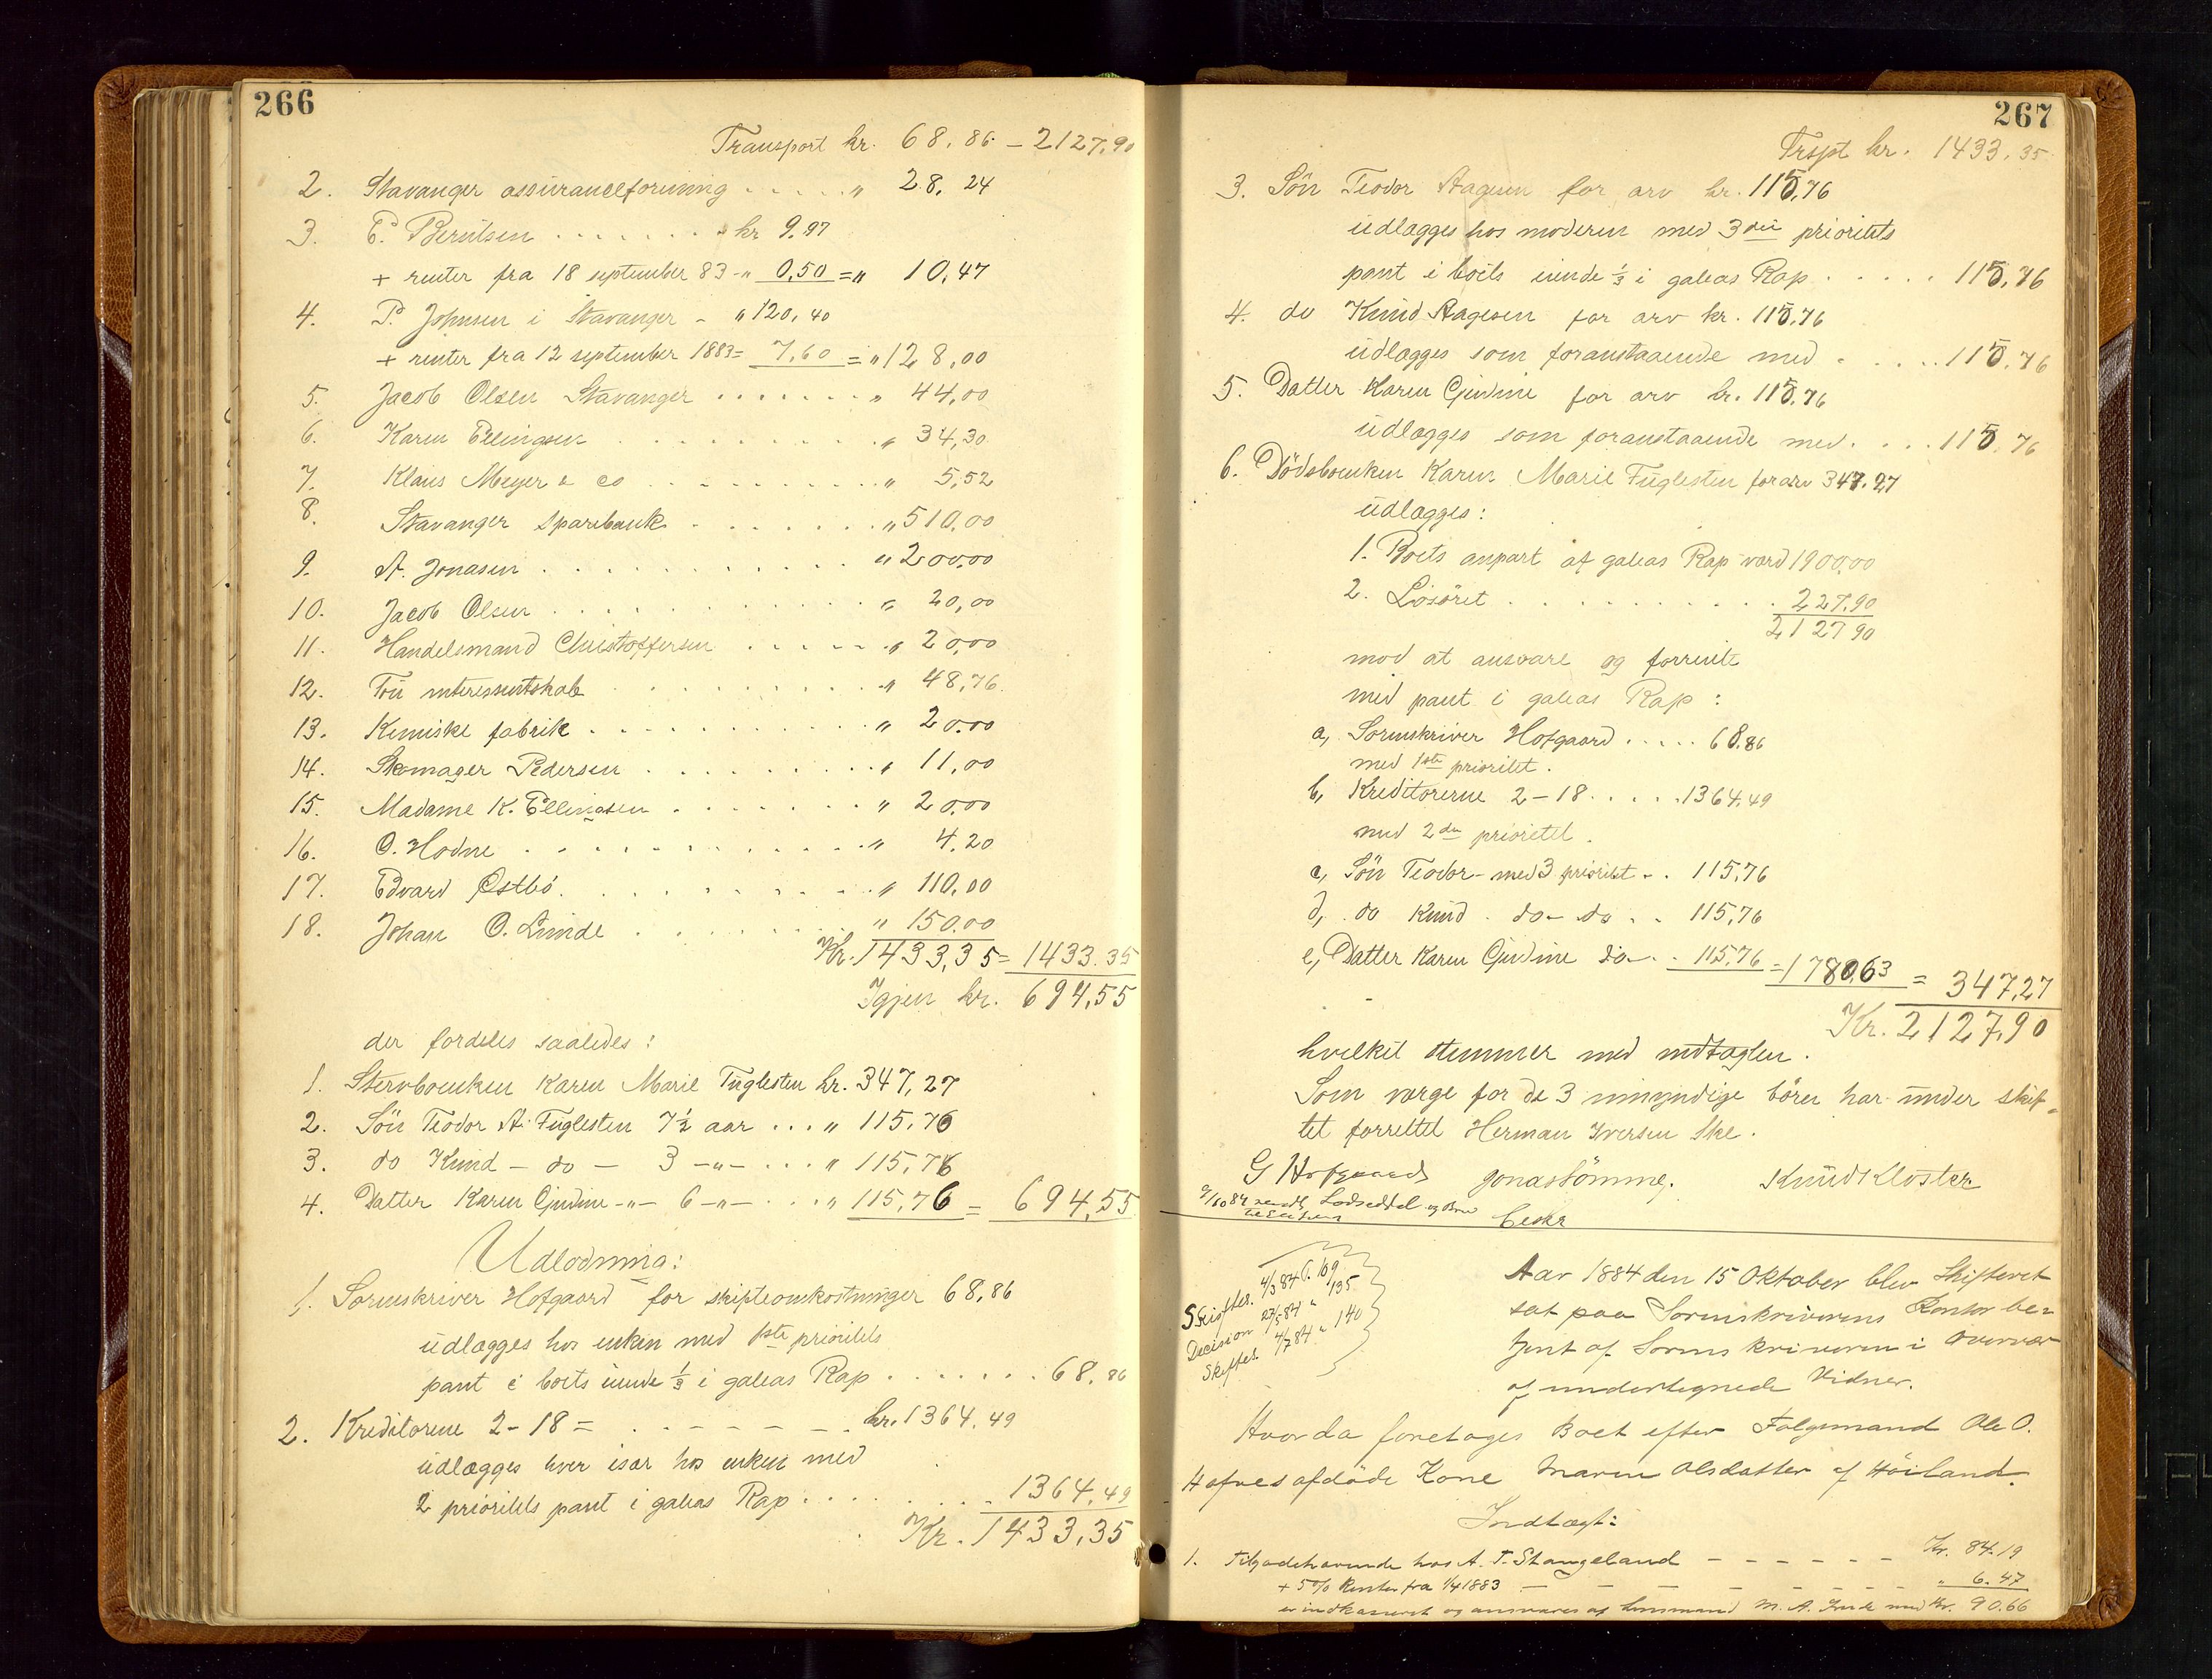 266
Transport kr. 68,86 - 2127,90
2. Stavanger assuranceforening . . . . . " 28,24
3. E. Berntsen . . . . . . . . kr 9.97
+ renter fra 18 september 83 - " 0,50 = " 10,47
4. P. Johnsen i Stavanger - " 120,40
+ renter fra 12 september 1883 = 7,60 = " 128,00
5. Jacob Olsen Stavanger . . . . . . . " 44,00
6. Karen Ellingsen . . . . . . . . . . " 34,30
7. Klaus Meyer & co . . . . . . . . . " 5,52
8. Stavanger sparebank . . . . . . . " 510,00
9. A. Jonasen . . . . . . . . . . . . " 200,00
10. Jacob Olsen . . . . . . . . . . . " 20,00
11. Handelsmand Christoffersen . . . . . " 20,00
12. Tou interessentskab . . . . . . . . . " 48,76
13. Kemiske fabrik . . . . . . . . . . " 20,00
14. Skomager Pedersen . . . . . . . . . " 11,00
15. Madame K. Ellingsen . . . . . . . . " 20,00
16. O. Hodne . . . . . . . . . . . . . " 4,20
17. Edvard Østbö . . . . . . . . . . . " 110,00
18. Johan O. Lunde . . . . . . . . " 150.00
Kr. 1433,35 = 1433.35
Igjen kr. 694,55
der fordeles saaledes:
1. Stervboenken Karen Marie Fuglesten kr. 347,27
2. Sön Teodor A. Fuglesten 7½ aar . . . " 115,76
3. do Knud - do - 3 - " - . . . " 115,76
4. Datter Karen Gjudine - " - 6 - " - . . . " 115,76 = 694,55
Udlodning:
1. Sorenskriver Hofgaard for skifteomkostninger 68,86
udlægges hos enken med 1ste prioritets
pant i boets iunde ⅓ i galeas Rap . . . . . . . 68,86
2. Kreditorene 2-18 = . - - - - - kr. 1364,49
udlægges hver især hos enken med
2 prioritets pant i galeas Rap . . . . . . . . 1364,49
Kr. 1433,35
267
Trspt kr. 1433,35
3. Sön Teodor Aagesen for arv kr. 115,76
udlægges hos moderen med 3die prioritets
pant i boets iunde ⅓ i galeas Rap . . . . . . 115,76
4. do Knud Aagesen for arv kr. 115,76
udlægges som foranstaaende med . . . . . 115,76
5. Datter Karen Gjudine for arv kr. 115,76
udlægges som foranstaaende med . . . . 115,76
6. Dödsboenken Karen Marie Fuglesten for arv 347,27
udlægges:
1. Boets anpart af galeas Rap værd 1900,00
2. Lösöret . . . . . . . . . . . . 227,90
2127,90
mod at ansvare og forrente
med pant i galeas Rap:
a, Sorenskriver Hofgaard . . . . . 68,86
med 1ste prioritet.
b, Kreditorerne 2-18 . . . . . 1364,49
med 2den prioritet.
c, Sön Teodor - med 3 prioritet - . 115,76
d, do Knud . do - do . . 115,76
e, Datter Karen Gjudine do - . . 115,76 = 1780,63 = 347,27
Kr. 2127,90
hvilket stemmer med indtægten.
Som værge for de 3 umyndige börn har under skif-
tet forrettet Herman Iversen Ske.
G Hofgaard Jonas Tömme. Knud Kloster
9/10 84 sendt Lodseddel og
Eeskr
Skiftes. 4/3 84 f. 109
Decision 23/5 84 " 135
Skiftes. 4/7 84 " 140
Aar 1884 den 15 Oktober blev Skifteret
sat paa Sorenskriverens Kontor be-
tjent af Sorenskriveren i Overvær
af undertegnede Vidner.
Hvor da foretages Boet efter Følgemand Ole O.
Hafnes afdöde Kone Maren Olsdatter af Höiland.
Indtægt:
1. Tilgodehavende hos A. T. Stangeland - - - - - - Kr. 84.19
+ 5% Renter fra 1/4 1883 - - - - - - - - " 6.47
er indkasseret og ansvares af Lensmand M. A. Grude med Kr. 90.66